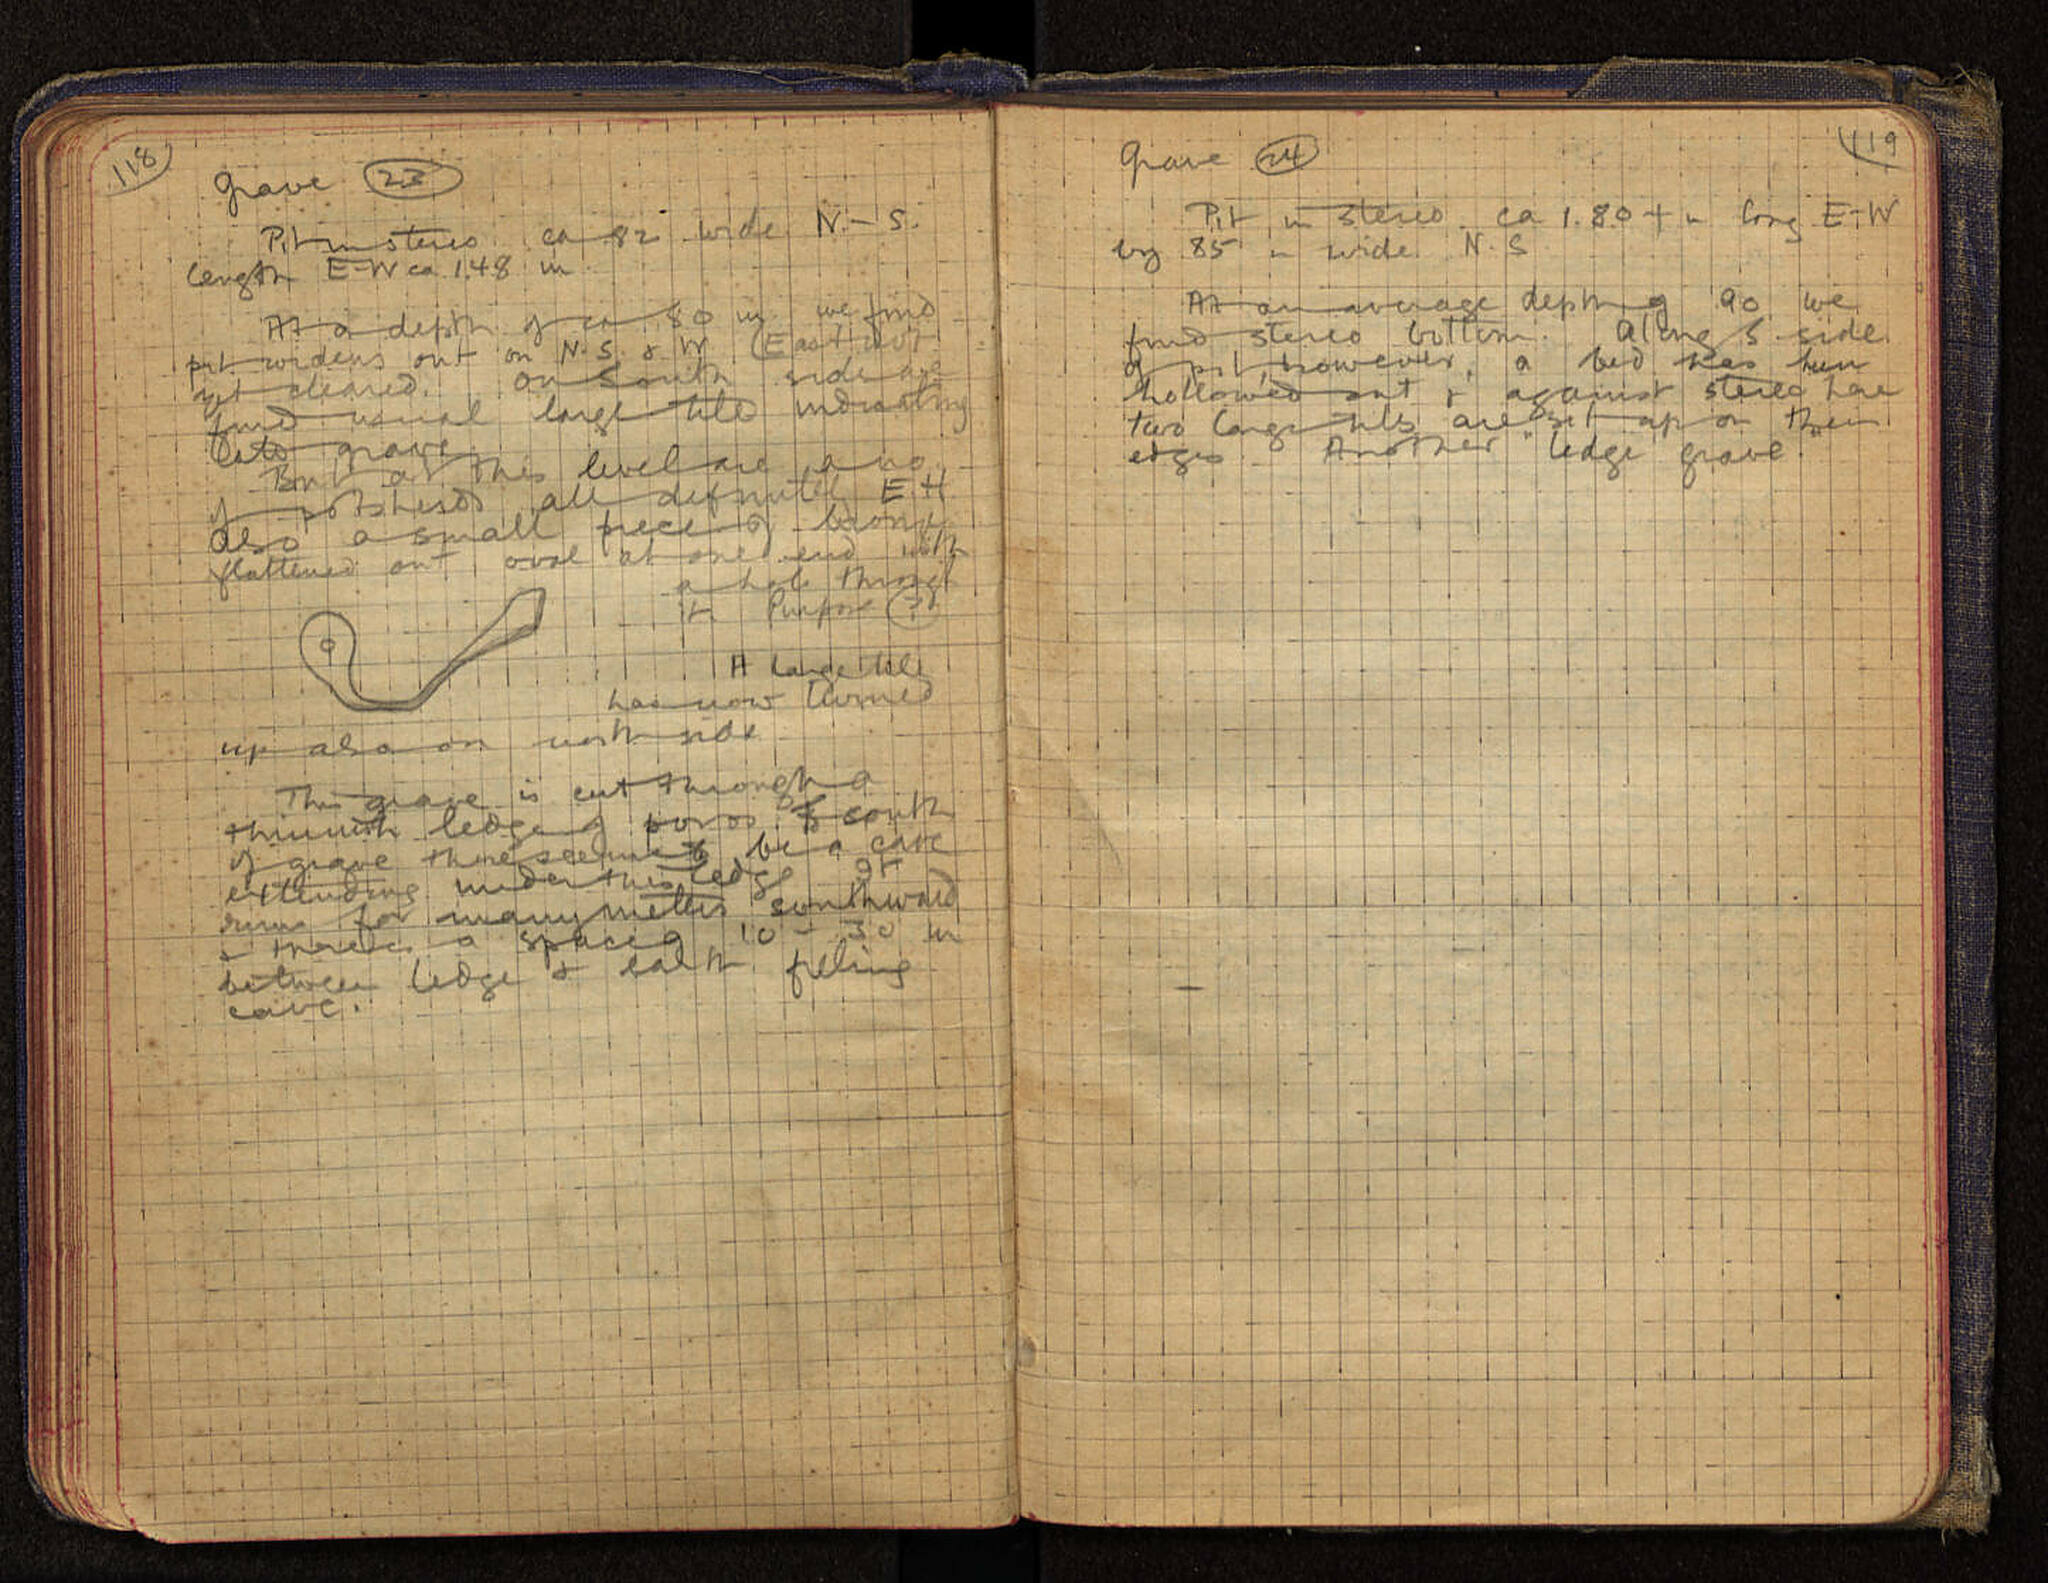 118
Grave 23
Pit in stereo ca 82 wide N-S.
length E-W ca 1.48 m
At a depth of ca 80 m we find
pit widens out on N. S. & W (East not
yet cleared. On South side are
found usual large tile indicating
late grave.
But at this level are a no.
of potsherds all definitely E H
also a small piece of bronze
flattened out oval at one end with
a hole through
it Purpose ?
A large tile
has now turned
up also on north side
This grave is cut through a
thinnish ledge of poros & south
of grave there seems to be a cave
extending under this ledge It
runs for many metres southward
& there is a space of 10 - 30 m
between ledge & earth filling
cave.
119
Grave 24
Pit in stereo ca 1.80 + m long E-W
by 85 m wide N-S
At an average depth of 90 we
find stereo bottom. Along S side
of pit, however, a bed has been
hollowed out & against stereo here
two large tiles are set up on their
edges Another "ledge grave".